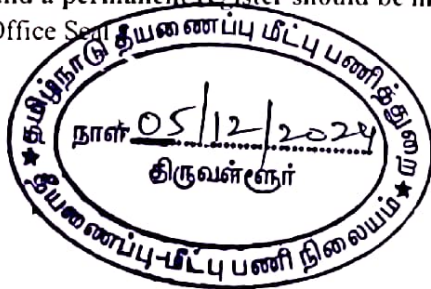 and a permanent register should be m
Office Seal
தமிழ்நாடு தீயணைப்பு மீட்பு பணித்துறை
நாள் 05/12/2024
திருவள்ளூர்
★ தீயணைப்பு-மீட்பு பணி நிலையம் ★